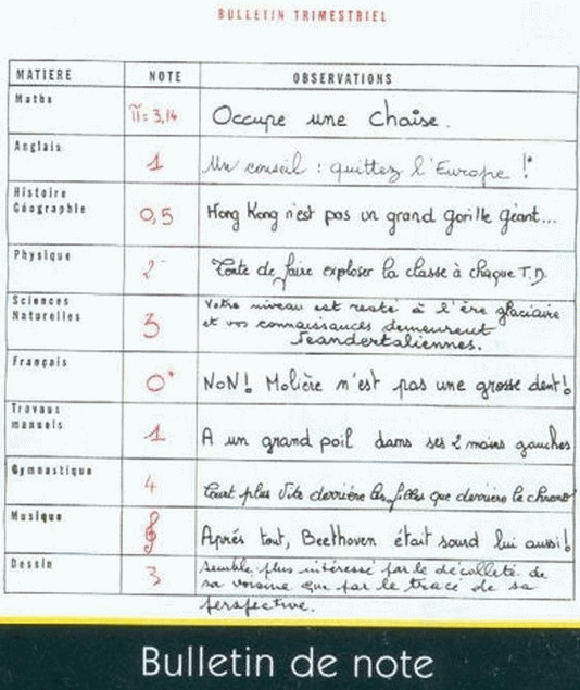 BULLETIN TRIMESTRIEL
MATIERE NOTE OBSERVATIONS
Maths π=3,14 Occupe une chaise.
Anglais 1 Un conseil : quittez l'Europe !
Histoire
Géographie 0,5 Hong Kong n'est pas un grand gorille géant...
Physique 2 Tente de faire exploser la classe à chaque T.D.
Sciences
Naturelles 3 Votre niveau est resté à l'ère glaciaire
et vos connaissances demeurent
Neandertaliennes.
Français 0 NON! Molière n'est pas une grosse dent!
Travaux
manuels 1 A un grand poil dans ses 2 mains gauches
Gymnastique 4 Court plus vite derrière les filles que derrière le chrono
Musique Après tout, Beethoven était sourd lui aussi!
Dessin 3 semble plus intéressé par le décolleté de
sa voisine que par le tracé de sa
perspective.
Bulletin de note